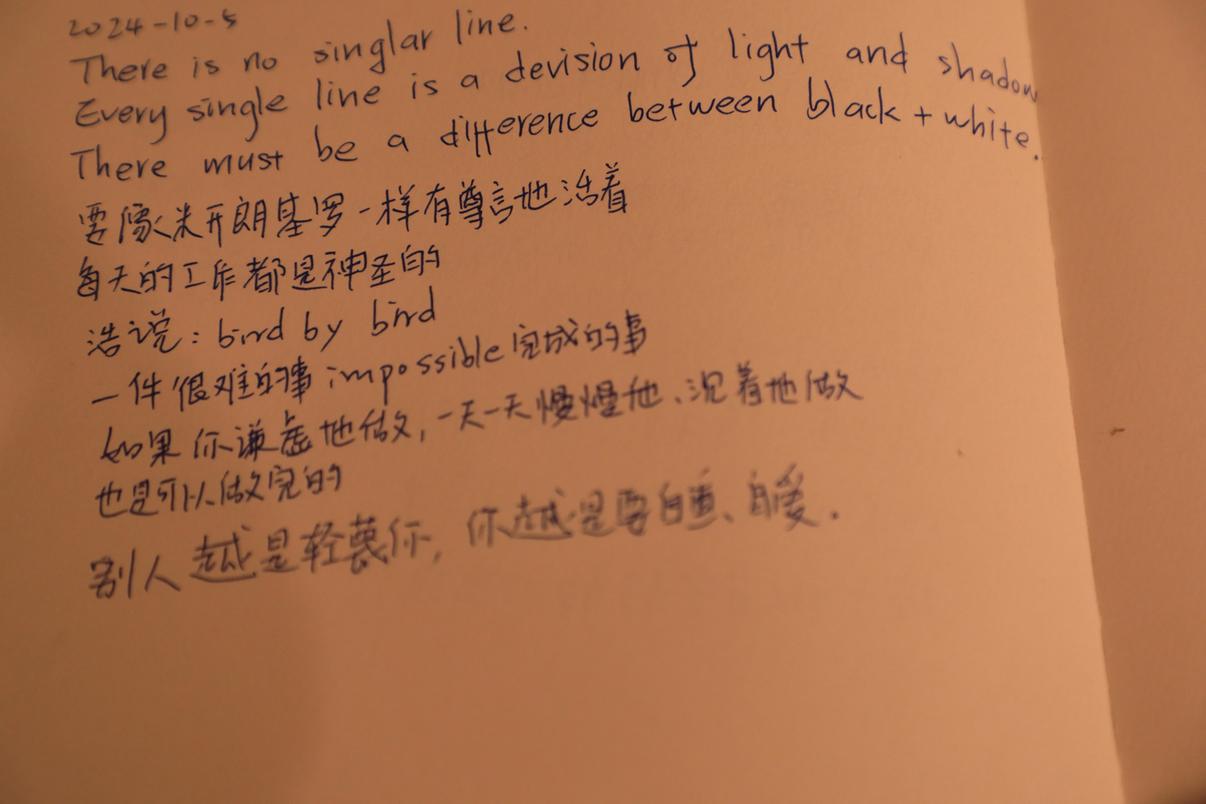 2024-10-5
There is no singlar line.
Every single line is a devision of light and shadow
There must be a difference between black + white.
要像米开朗基罗一样有尊言地活着
每天的工作都是神圣的
浩说：bird by bird
一件很难的事 impossible 完成的事
如果你谦虚地做，一天一天慢慢地、沉着地做
也是可以做完的
别人越是轻蔑你，你越是要自重、自爱.